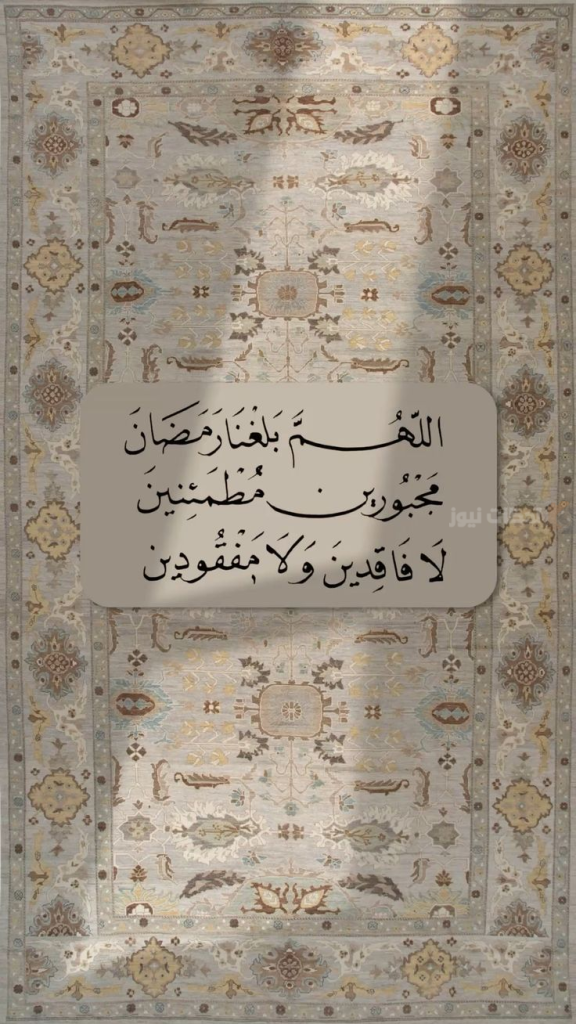 اللّٰهُمَّ بَلِغْنَا رَمَضَانَ
مَجْبُورين مُطْمَئِنِينَ
لَا فَاقِدِينَ وَلَا مَفْقُودِين
نيوز